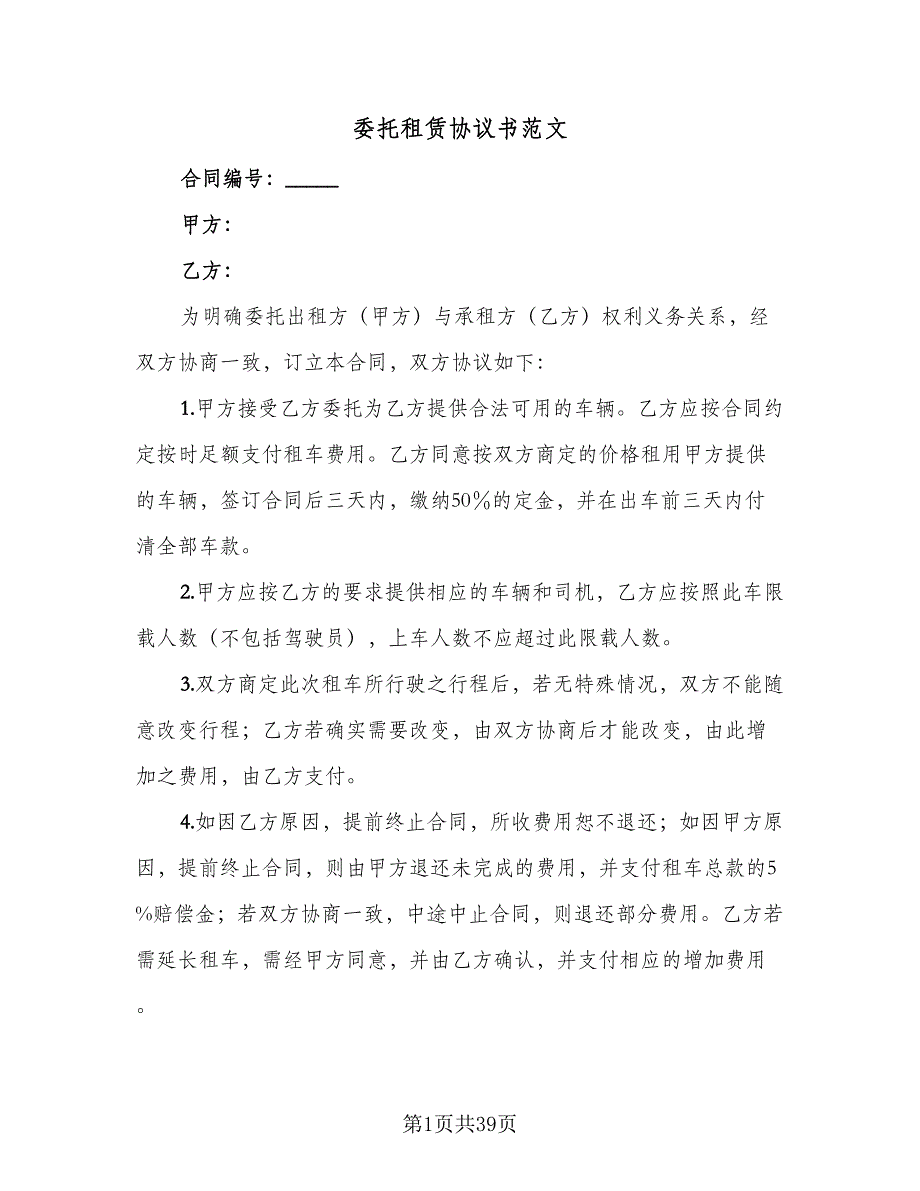 委托租赁协议书范文
合同编号：_____
甲方：
乙方：
为明确委托出租方（甲方）与承租方（乙方）权利义务关系，经
双方协商一致，订立本合同，双方协议如下：
1.甲方接受乙方委托为乙方提供合法可用的车辆。乙方应按合同约
定按时足额支付租车费用。乙方同意按双方商定的价格租用甲方提供
的车辆，签订合同后三天内，缴纳50％的定金，并在出车前三天内付
清全部车款。
2.甲方应按乙方的要求提供相应的车辆和司机，乙方应按照此车限
载人数（不包括驾驶员），上车人数不应超过此限载人数。
3.双方商定此次租车所行驶之行程后，若无特殊情况，双方不能随
意改变行程；乙方若确实需要改变，由双方协商后才能改变，由此增
加之费用，由乙方支付。
4.如因乙方原因，提前终止合同，所收费用恕不退还；如因甲方原
因，提前终止合同，则由甲方退还未完成的费用，并支付租车总款的5
%赔偿金；若双方协商一致，中途中止合同，则退还部分费用。乙方若
需延长租车，需经甲方同意，并由乙方确认，并支付相应的增加费用
。
第1页共39页